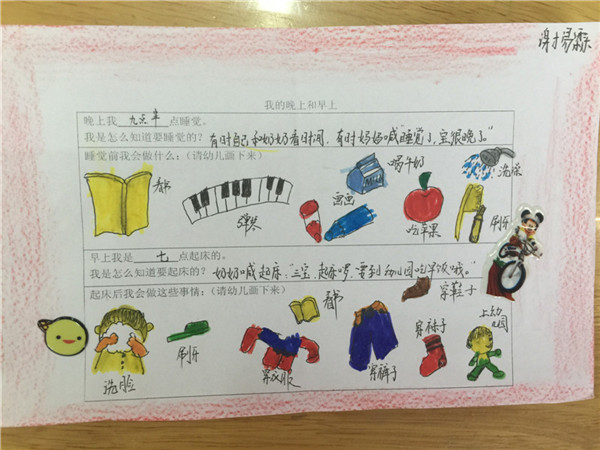 谢易霖
我的晚上和早上
晚上我 九点半 点睡觉。
我是怎么知道要睡觉的？有时自己和奶奶看时间，有时奶奶喊"睡觉了，宝很晚了。"
睡觉前我会做什么：（请幼儿画下来）
看书
弹琴
画画
喝牛奶
吃苹果
洗澡
刷牙
早上我是 七 点起床的。
我是怎么知道要起床的？奶奶喊起床，"三宝，起床啰，要到幼儿园吃早饭哦。"
起床后我会做这些事情：（请幼儿画下来）
洗脸
刷牙
穿衣服
看书
穿裤子
穿鞋子
穿袜子
上幼儿园